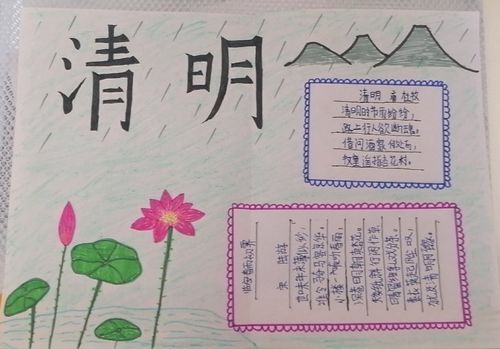 清明
清明 唐 杜牧
清明时节雨纷纷,
路上行人欲断魂。
借问酒家何处有,
牧童遥指杏花村。
临安春雨初霁
宋 陆游
世味年来薄似纱,
谁令骑马客京华。
小楼一夜听春雨,
深巷明朝卖杏花。
矮纸斜行闲作草,
晴窗细乳戏分茶。
素衣莫起风尘叹,
犹及清明可到家。